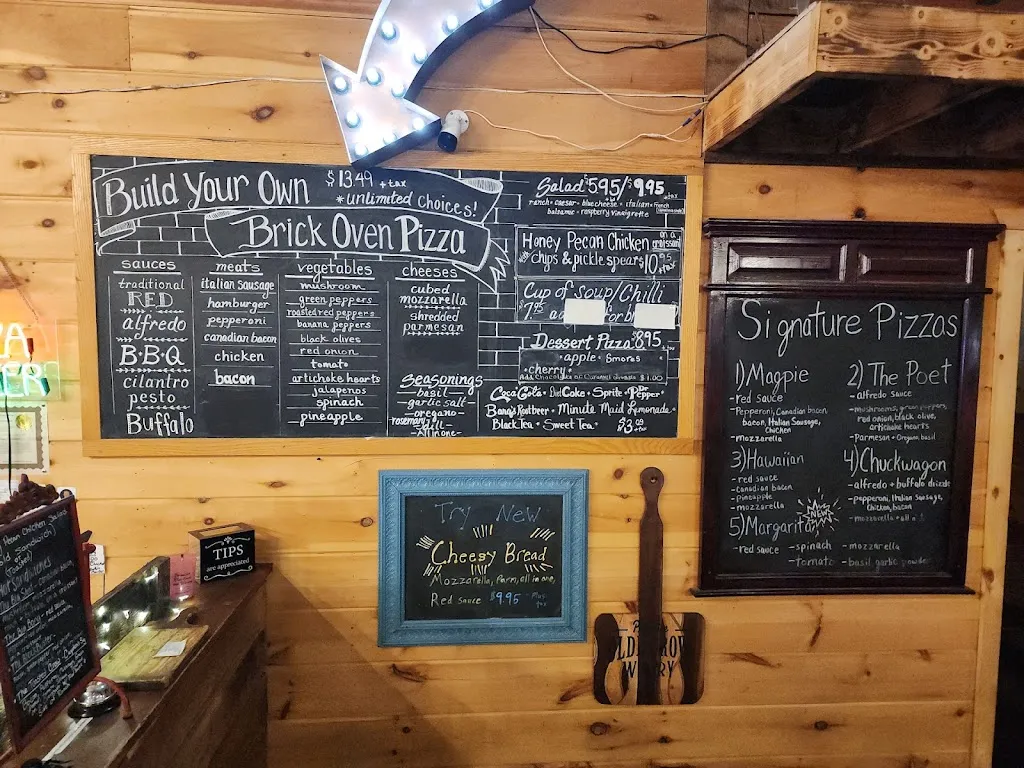 Build Your Own
$13.49 +tax
*unlimited choices!
Brick Oven Pizza
sauces
traditional
RED
alfredo
B.B.Q
cilantro
pesto
Buffalo
meats
italian sausage
hamburger
pepperoni
canadian bacon
chicken
bacon
vegetables
mushroom
green peppers
roasted red peppers
banana peppers
black olives
red onion
tomato
artichoke hearts
jalapenos
spinach
pineapple
cheeses
cubed
mozzarella
shredded
parmesan
seasonings
basil
-garlic salt-
-oregano-
rosemary
-dill-
-All in one-
Salad $5.95/$9.95 +tax
ranch • caesar • blue cheese • italian • French
balsamic • raspberry vinaigrette
Honey Pecan Chicken on a croissant
with chips & pickle spears $10.95 +tax
Cup of Soup/Chilli
$7.95
Dessert Pizza $8.95 +tax
• apple • Smores
• cherry •
Add Chocolate or Caramel drizzle $1.00
Coca Cola • Diet Coke • Sprite • Dr Pepper •
Barq's Rootbeer • Minute Maid Lemonade •
Black Tea • Sweet Tea • $3.09 +tax
Signature Pizzas
1) Magpie
- red sauce
Pepperoni, Canadian bacon
bacon, Italian Sausage,
Chicken
- mozzarella
2) The Poet
- alfredo sauce
- mushrooms, green peppers,
red onion, black olive,
artichoke hearts
- Parmesan + Oregano, basil
3) Hawaiian
- red sauce
- canadian bacon
- pineapple
- mozzarella
4) Chuckwagon
- alfredo + buffalo drizzle
- pepperoni, Italian Sausage,
Chicken, bacon
- mozzarella + all in 1
NEW
5) Margarita
- red sauce - spinach - mozzarella
- Tomato - basil garlic powder
Try New
Cheesy Bread
Mozzarella, Parm, all in one,
Red sauce $9.95 + tax
TIPS
are appreciated
Pecan Chicken Salad